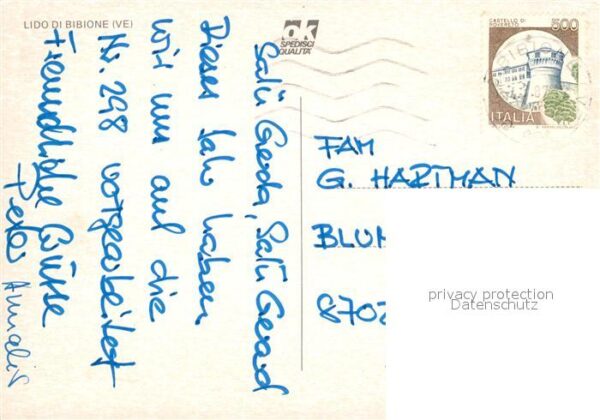 LIDO DI BIBIONE (VE)
ak
SPEDISCI
QUALITÀ
CASTELLO DI
ROVERETO
500
ITALIA
Salü Gerda, Salü Gerard
Dieses Jahr haben
wir uns auf die
Nr. 298 vorgearbeitet
Freundliche Grüsse
Peter Annalis
FAM
G. HARTMAN
BLUM
8702
privacy protection
Datenschutz